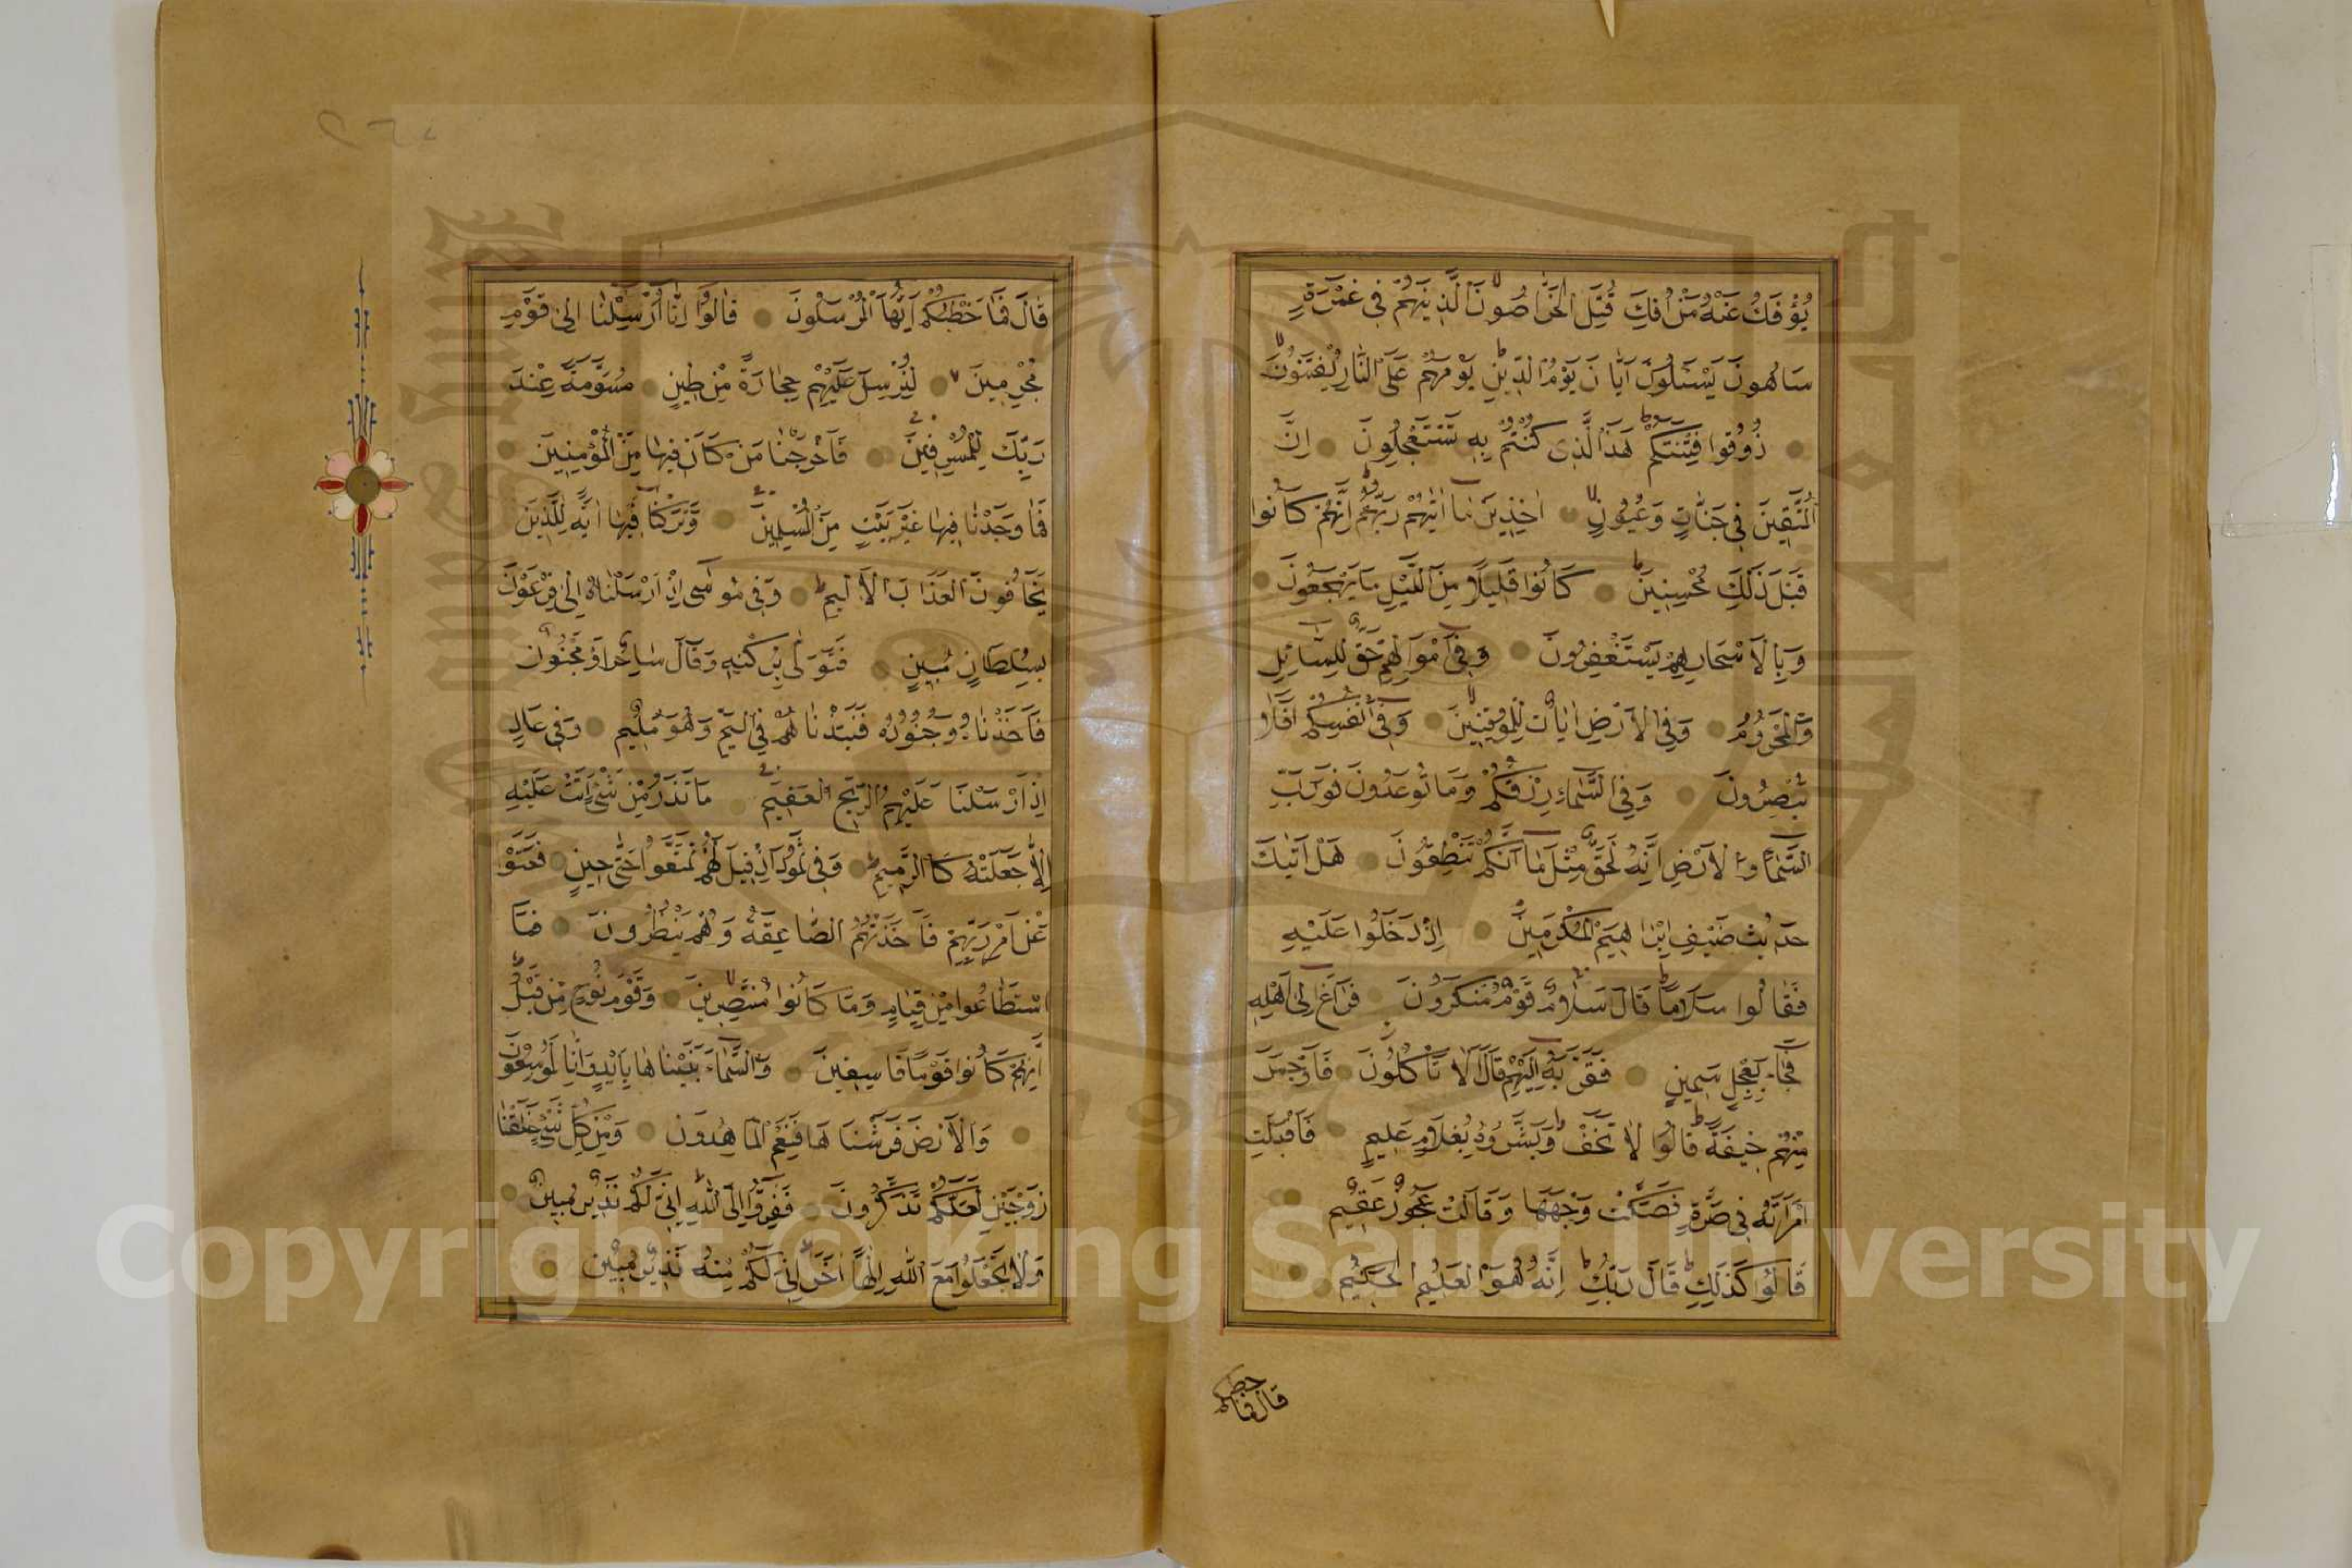 يُؤْفَكُ عَنْهُ مَنْ اُفِكَ قُتِلَ الْخَرَّاصُونَ الَّذِينَ هُمْ فِى غَمْرَةٍ
سَاهُونَ يَسْئَلُونَ اَيَّانَ يَوْمُ الدِّينِ يَوْمَ هُمْ عَلَى النَّارِ يُفْتَنُونَ
ذُوقُوا فِتْنَتَكُمْ هٰذَا الَّذِى كُنْتُمْ بِهِ تَسْتَعْجِلُونَ اِنَّ
الْمُتَّقِينَ فِى جَنَّاتٍ وَعُيُونٍ اٰخِذِينَ مَا اٰتٰيهُمْ رَبُّهُمْ اِنَّهُمْ كَانُوا
قَبْلَ ذٰلِكَ مُحْسِنِينَ كَانُوا قَلِيلًا مِنَ الَّيْلِ مَا يَهْجَعُونَ
وَبِالْاَسْحَارِ هُمْ يَسْتَغْفِرُونَ وَفِى اَمْوَالِهِمْ حَقٌّ لِلسَّائِلِ
وَالْمَحْرُومِ وَفِى الْاَرْضِ اٰيَاتٌ لِلْمُوقِنِينَ وَفِى اَنْفُسِكُمْ اَفَلَا
تُبْصِرُونَ وَفِى السَّمَاءِ رِزْقُكُمْ وَمَا تُوعَدُونَ فَوَرَبِّ
السَّمَاءِ وَالْاَرْضِ اِنَّهُ لَحَقٌّ مِثْلَ مَا اَنَّكُمْ تَنْطِقُونَ هَلْ اَتٰيكَ
حَدِيثُ ضَيْفِ اِبْرٰاهِيمَ الْمُكْرَمِينَ اِذْ دَخَلُوا عَلَيْهِ
فَقَالُوا سَلَامًا قَالَ سَلَامٌ قَوْمٌ مُنْكَرُونَ فَرَاغَ اِلٰى اَهْلِهِ
فَجَاءَ بِعِجْلٍ سَمِينٍ فَقَرَّبَهُ اِلَيْهِمْ قَالَ اَلَا تَأْكُلُونَ فَاَوْجَسَ
مِنْهُمْ خِيفَةً قَالُوا لَا تَخَفْ وَبَشَّرُوهُ بِغُلَامٍ عَلِيمٍ فَاَقْبَلَتِ
امْرَاَتُهُ فِى صَرَّةٍ فَصَكَّتْ وَجْهَهَا وَقَالَتْ عَجُوزٌ عَقِيمٌ
قَالُوا كَذٰلِكِ قَالَ رَبُّكِ اِنَّهُ هُوَ الْعَلِيمُ الْحَكِيمُ
قال فما خطبكم
قَالَ فَمَا خَطْبُكُمْ اَيُّهَا الْمُرْسَلُونَ قَالُوا اِنَّا اُرْسِلْنَا اِلٰى قَوْمٍ
مُجْرِمِينَ لِنُرْسِلَ عَلَيْهِمْ حِجَارَةً مِنْ طِينٍ مُسَوَّمَةً عِنْدَ
رَبِّكَ لِلْمُسْرِفِينَ فَاَخْرَجْنَا مَنْ كَانَ فِيهَا مِنَ الْمُؤْمِنِينَ
فَمَا وَجَدْنَا فِيهَا غَيْرَ بَيْتٍ مِنَ الْمُسْلِمِينَ وَتَرَكْنَا فِيهَا اٰيَةً لِلَّذِينَ
يَخَافُونَ الْعَذَابَ الْاَلِيمَ وَفِى مُوسٰى اِذْ اَرْسَلْنَاهُ اِلٰى فِرْعَوْنَ
بِسُلْطَانٍ مُبِينٍ فَتَوَلّٰى بِرُكْنِهِ وَقَالَ سَاحِرٌ اَوْ مَجْنُونٌ
فَاَخَذْنَاهُ وَجُنُودَهُ فَنَبَذْنَاهُمْ فِى الْيَمِّ وَهُوَ مُلِيمٌ وَفِى عَادٍ
اِذْ اَرْسَلْنَا عَلَيْهِمُ الرِّيحَ الْعَقِيمَ مَا تَذَرُ مِنْ شَىْءٍ اَتَتْ عَلَيْهِ
اِلَّا جَعَلَتْهُ كَالرَّمِيمِ وَفِى ثَمُودَ اِذْ قِيلَ لَهُمْ تَمَتَّعُوا حَتّٰى حِينٍ فَعَتَوْا
عَنْ اَمْرِ رَبِّهِمْ فَاَخَذَتْهُمُ الصَّاعِقَةُ وَهُمْ يَنْظُرُونَ فَمَا
اسْتَطَاعُوا مِنْ قِيَامٍ وَمَا كَانُوا مُنْتَصِرِينَ وَقَوْمَ نُوحٍ مِنْ قَبْلُ
اِنَّهُمْ كَانُوا قَوْمًا فَاسِقِينَ وَالسَّمَاءَ بَنَيْنَاهَا بِاَيْدٍ وَاِنَّا لَمُوسِعُونَ
وَالْاَرْضَ فَرَشْنَاهَا فَنِعْمَ الْمَاهِدُونَ وَمِنْ كُلِّ شَىْءٍ خَلَقْنَا
زَوْجَيْنِ لَعَلَّكُمْ تَذَكَّرُونَ فَفِرُّوا اِلَى اللّٰهِ اِنِّى لَكُمْ مِنْهُ نَذِيرٌ مُبِينٌ
وَلَا تَجْعَلُوا مَعَ اللّٰهِ اِلٰهًا اٰخَرَ اِنِّى لَكُمْ مِنْهُ نَذِيرٌ مُبِينٌ
Copyright © King Saud University